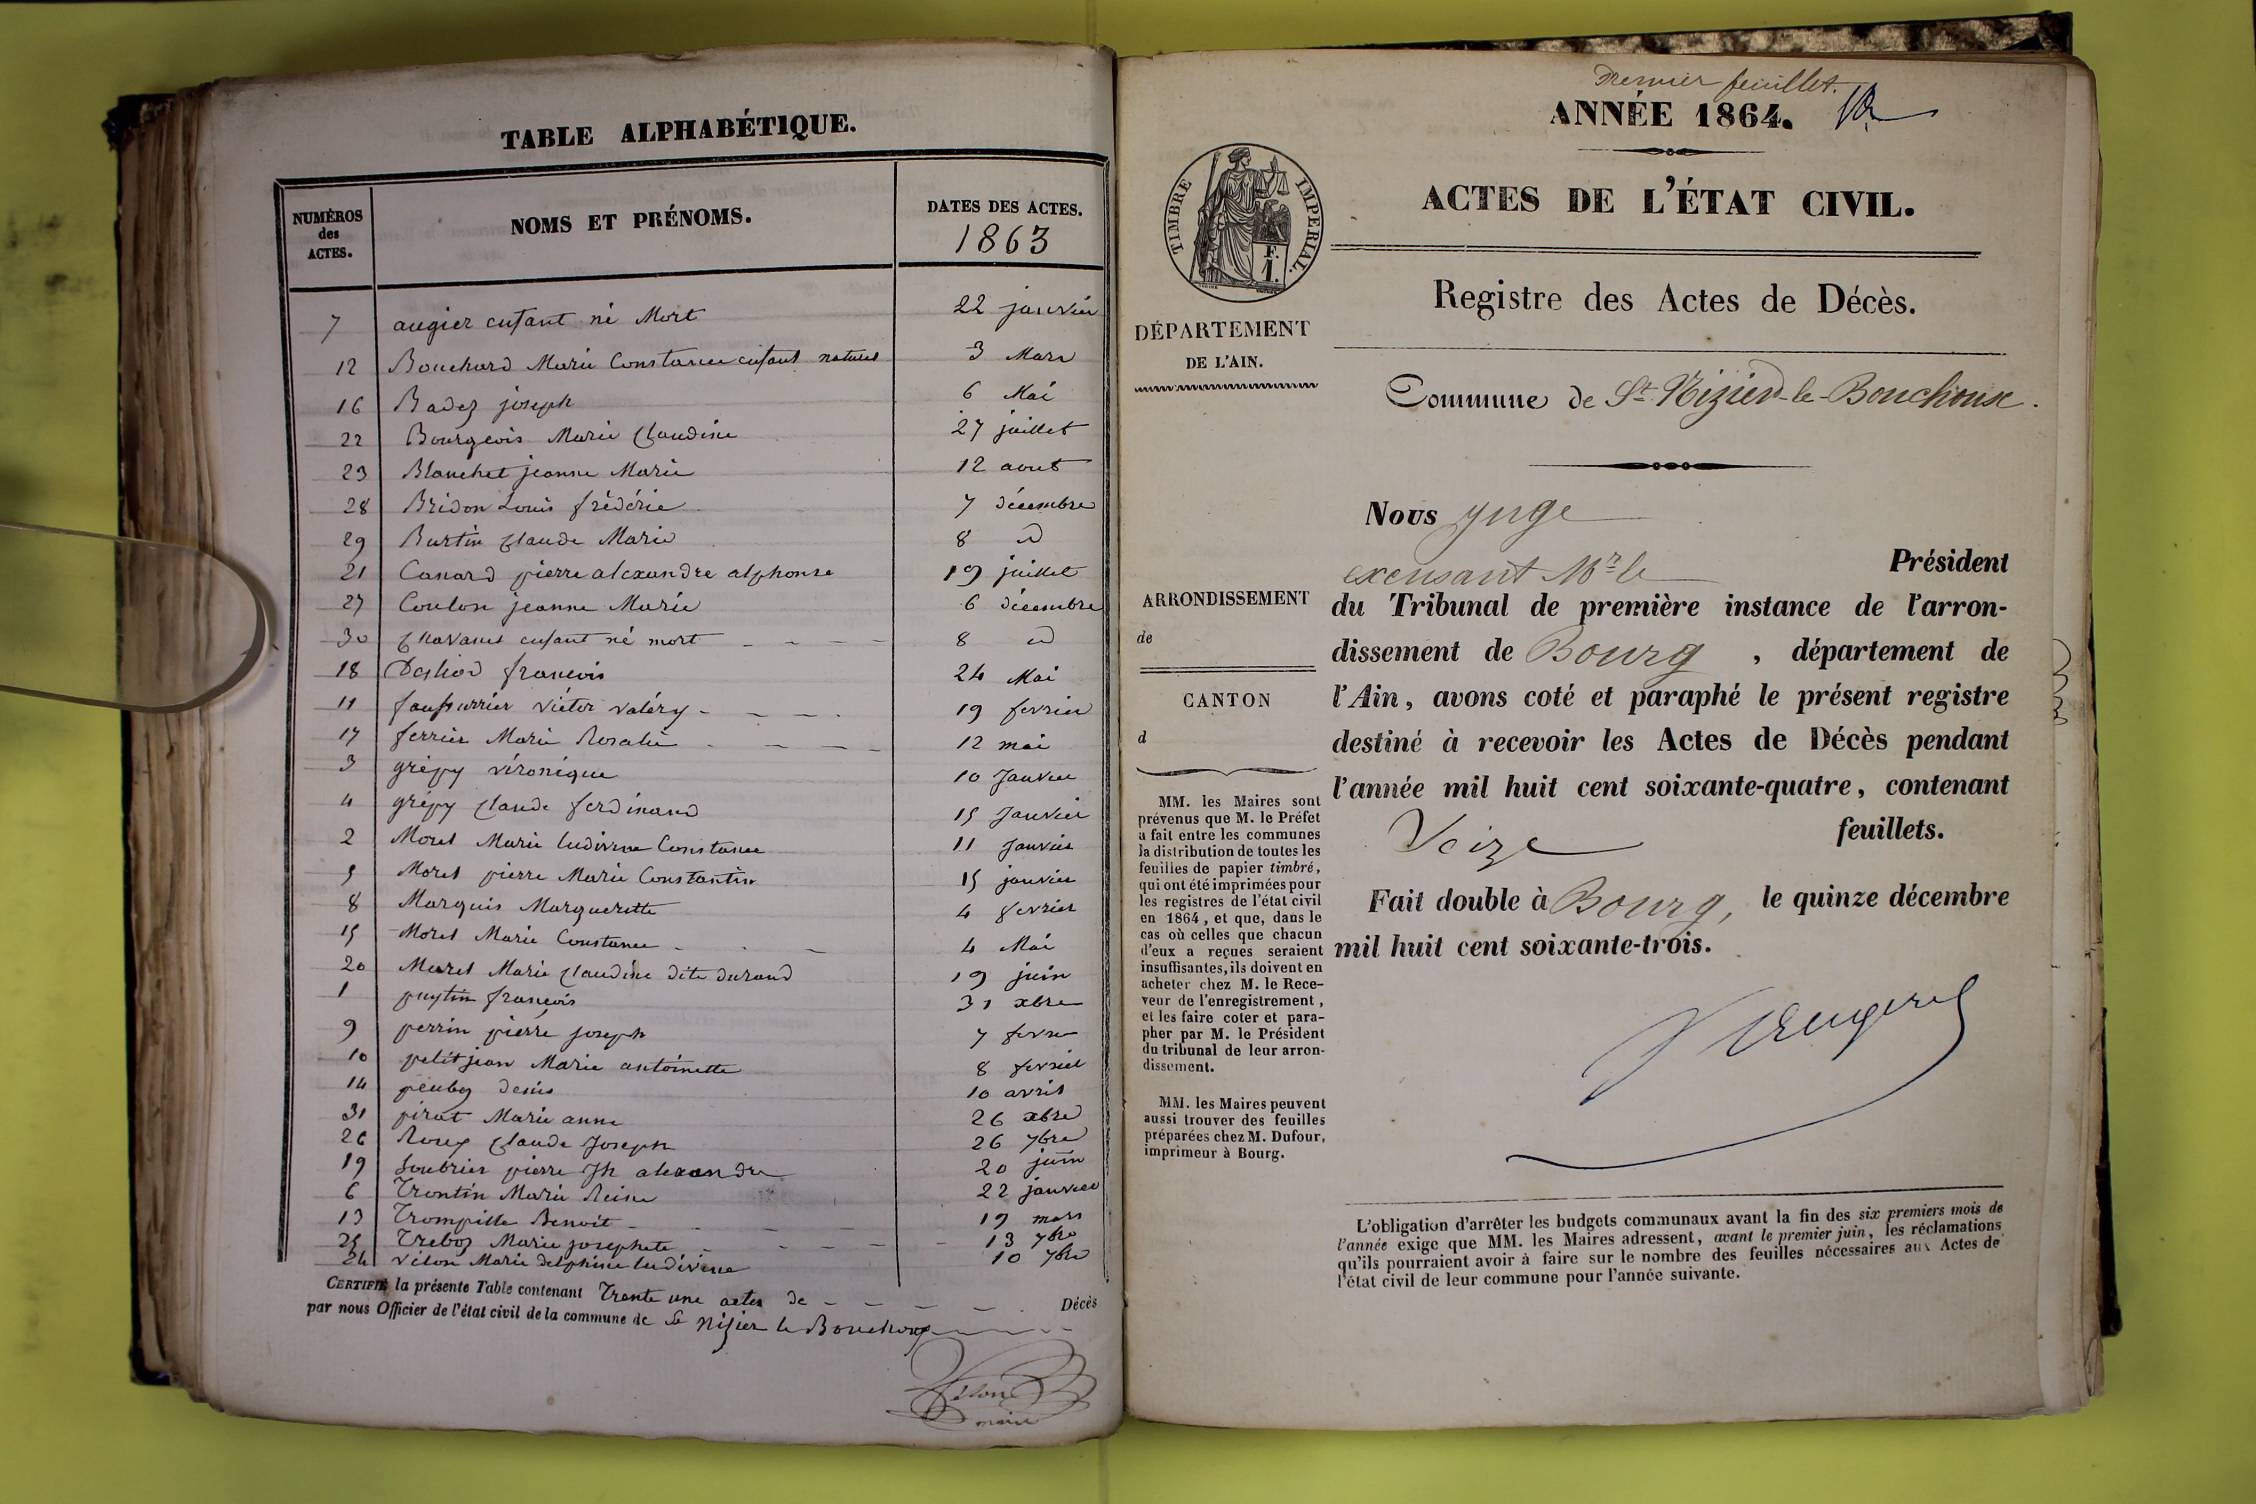 TABLE ALPHABÉTIQUE.
NUMÉROS des ACTES.
NOMS ET PRÉNOMS.
DATES DES ACTES.
1863
7 augier enfant né Mort 22 janvier
12 Bouchard Marie Constance enfant naturel 3 Mars
16 Badez joseph 6 Mai
22 Bourgeois Marie Claudine 27 juillet
23 Blanchet jeanne Marie 12 aout
28 Bridon Louis frédéric 7 décembre
29 Burtin Claude Marie 8 d
21 Canard pierre alexandre alphonse 19 juillet
27 Coulon jeanne Marie 6 décembre
30 Chavanet enfant né mort 8 d
18 françois 24 Mai
11 victor valéry 19 fevrier
17 ferrier Marie Rosalie 12 mai
3 grépy véronique 10 Janvier
4 grépy Claude ferdinand 15 Janvier
2 Morel Marie ludivine Constance 11 Janvier
5 Morel pierre Marie Constantin 15 janvier
8 Marquis Marguerette 4 fevrier
15 Morel Marie Constance 4 Mai
20 Morel Marie Claudine dite durand 19 juin
1 putin françois 31 xbre
9 perrin pierre joseph 7 fevrier
10 petitjean Marie antoinette 8 fevrier
14 denis 10 avril
31 pirat Marie anne 26 xbre
26 Roux Claude Joseph 26 7bre
19 Soubrier pierre Jh alexandre 20 juin
6 Trontin Marie Reine 22 janvier
13 Trompille Benoit 19 mars
25 Treboz Marie josephete 13 7bre
24 Vélon Marie delphine ludivine 10 7bre
CERTIFIÉ la présente Table contenant Trente une actes de Décès
par nous Officier de l'état civil de la commune de St Nizier le Bouchoux
Vélon
maire
Premier feuillet.
ANNÉE 1864.
ACTES DE L'ÉTAT CIVIL.
TIMBRE IMPERIAL.
F.
1.
Registre des Actes de Décès.
DÉPARTEMENT
DE L'AIN.
Commune de St Nizier-le-Bouchoux.
Nous juge
excusant Mr le Président
du Tribunal de première instance de l'arron-
dissement de Bourg, département de
l'Ain, avons coté et paraphé le présent registre
destiné à recevoir les Actes de Décès pendant
l'année mil huit cent soixante-quatre, contenant
Seize feuillets.
Fait double à Bourg, le quinze décembre
mil huit cent soixante-trois.
ARRONDISSEMENT
de
CANTON
d
MM. les Maires sont
prévenus que M. le Préfet
a fait entre les communes
la distribution de toutes les
feuilles de papier timbré,
qui ont été imprimées pour
les registres de l'état civil
en 1864, et que, dans le
cas où celles que chacun
d'eux a reçues seraient
insuffisantes, ils doivent en
acheter chez M. le Rece-
veur de l'enregistrement,
et les faire coter et para-
pher par M. le Président
du tribunal de leur arron-
dissement.
MM. les Maires peuvent
aussi trouver des feuilles
préparées chez M. Dufour,
imprimeur à Bourg.
L'obligation d'arrêter les budgets communaux avant la fin des six premiers mois de
l'année exige que MM. les Maires adressent, avant le premier juin, les réclamations
qu'ils pourraient avoir à faire sur le nombre des feuilles nécessaires aux Actes de
l'état civil de leur commune pour l'année suivante.